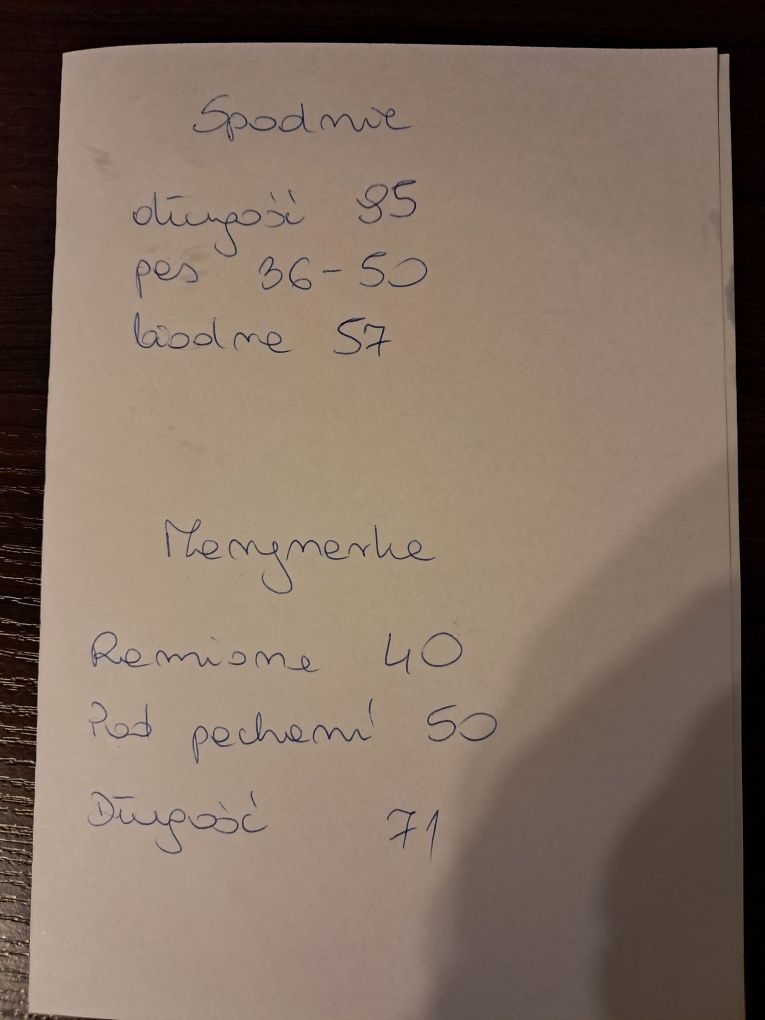 Spodnie
długość 95
pas 36-50
biodra 57
Marynarka
Ramiona 40
Pod pachami 50
Długość 71